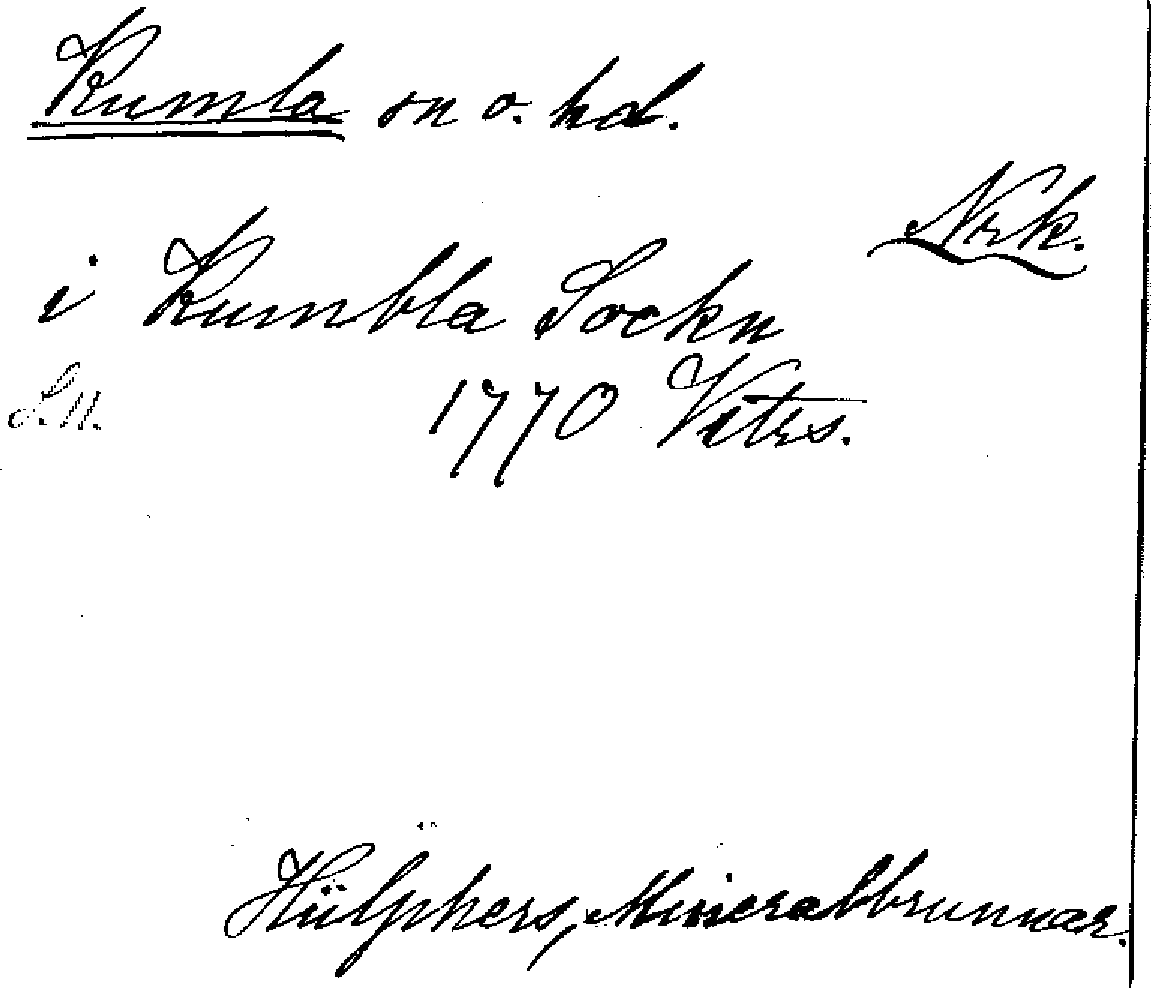 Kumla sn o. hd.
Nrk.
i Kumbla Sockn
1770 Vitrs.
S.N.
Hülphers, Mineralbrunnar.